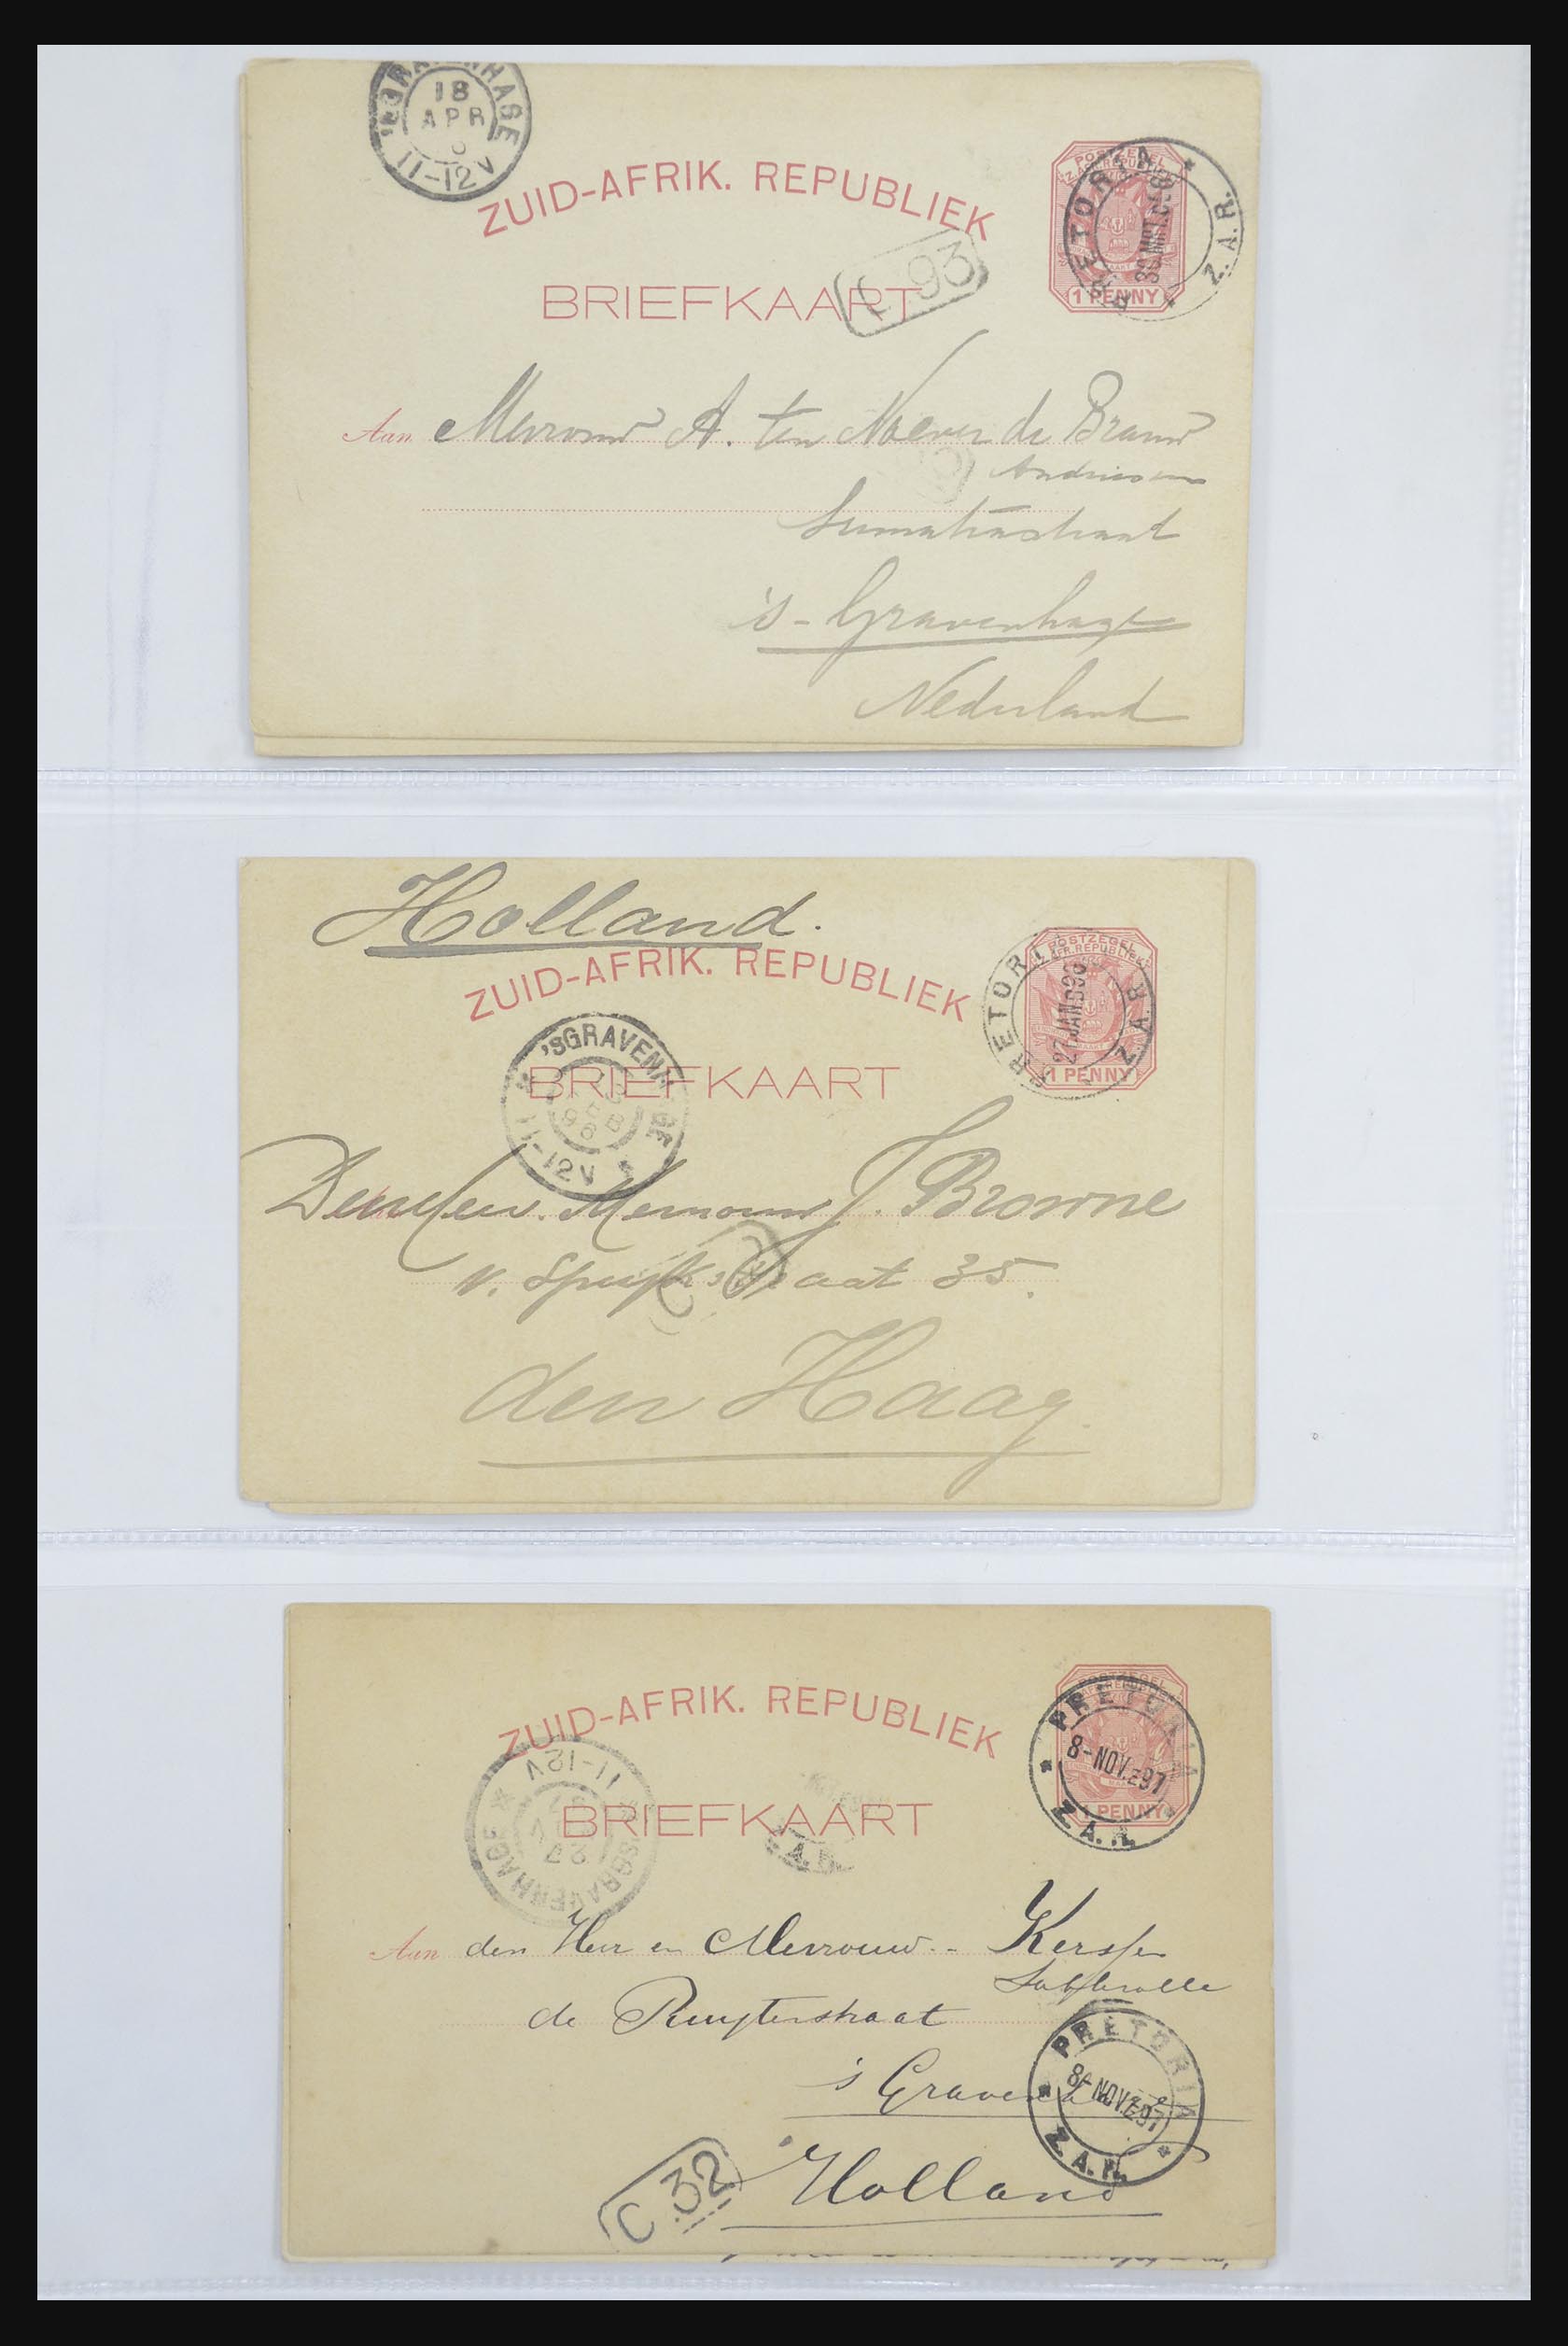 'SGRAVENHAGE
18
APR
11-12V
ZUID-AFRIK. REPUBLIEK
POSTZEGEL
1 PENNY
PRETORIA
Z.A.R.
93
BRIEFKAART
Aan Mevrouw A. ten Noever de Brauw
Andriessen
Sumatrastraat
's-Gravenhage
Nederland
Holland.
ZUID-AFRIK. REPUBLIEK
POSTZEGEL
Z. AFR. REPUBLIEK
1 PENNY
PRETORIA
27 JAN 96
Z.A.R.
'SGRAVENHAGE
FEB
96
11-12V
BRIEFKAART
Mevrouw J. Browne
v. Speijkstraat 35.
den Haag.
ZUID-AFRIK. REPUBLIEK
POSTZEGEL
1 PENNY
PRETORIA
8-NOV.97
Z.A.R.
'SGRAVENHAGE
11-12V
BRIEFKAART
Aan den Heer en Mevrouw Kerssen
de Ruyterstraat
's Gravenhage
PRETORIA
8-NOV.97
Z.A.R.
Holland
C 32